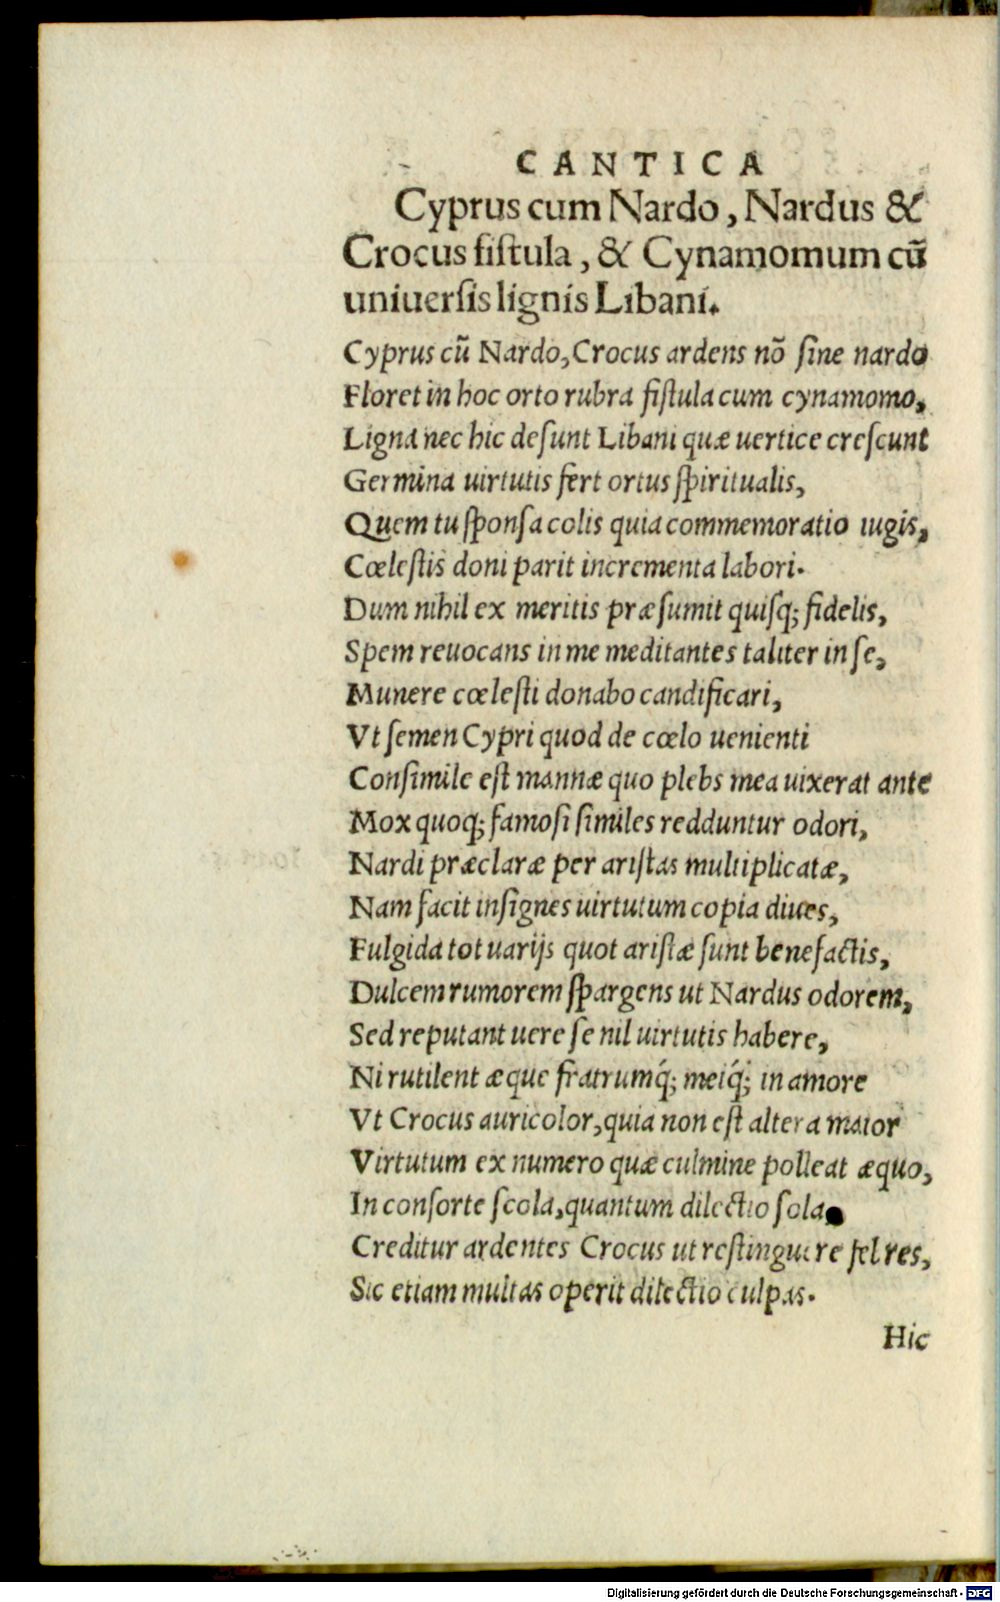 CANTICA
Cyprus cum Nardo, Nardus &
Crocus fistula, & Cynamomum cũ
uniuersis lignis Libani.
Cyprus cũ Nardo, Crocus ardens nõ sine nardo
Floret in hoc orto rubra fistula cum cynamomo,
Ligna nec hic desunt Libani quæ uertice crescunt
Germina uirtutis fert ortus spiritualis,
Quem tu sponsa colis quia commemoratio iugis,
Cœlestis doni parit incrementa labori.
Dum nihil ex meritis præsumit quisq; fidelis,
Spem reuocans in me meditantes taliter in se,
Munere cœlesti donabo candificari,
Vt semen Cypri quod de cœlo uenienti
Consimile est mannæ quo plebs mea uixerat ante
Mox quoq; famosi similes redduntur odori,
Nardi præclaræ per aristas multiplicatæ,
Nam facit insignes uirtutum copia diues,
Fulgida tot uarijs quot aristæ sunt benefactis,
Dulcem rumorem spargens ut Nardus odorem,
Sed reputant uere se nil uirtutis habere,
Ni rutilent æque fratrumq́; meiq́; in amore
Vt Crocus auricolor, quia non est altera maior
Virtutum ex numero quæ culmine polleat æquo,
In consorte scola, quantum dilectio sola
Creditur ardentes Crocus ut restinguere fel res,
Sic etiam multas operit dilectio culpas.
Hic
Digitalisierung gefördert durch die Deutsche Forschungsgemeinschaft - DFG